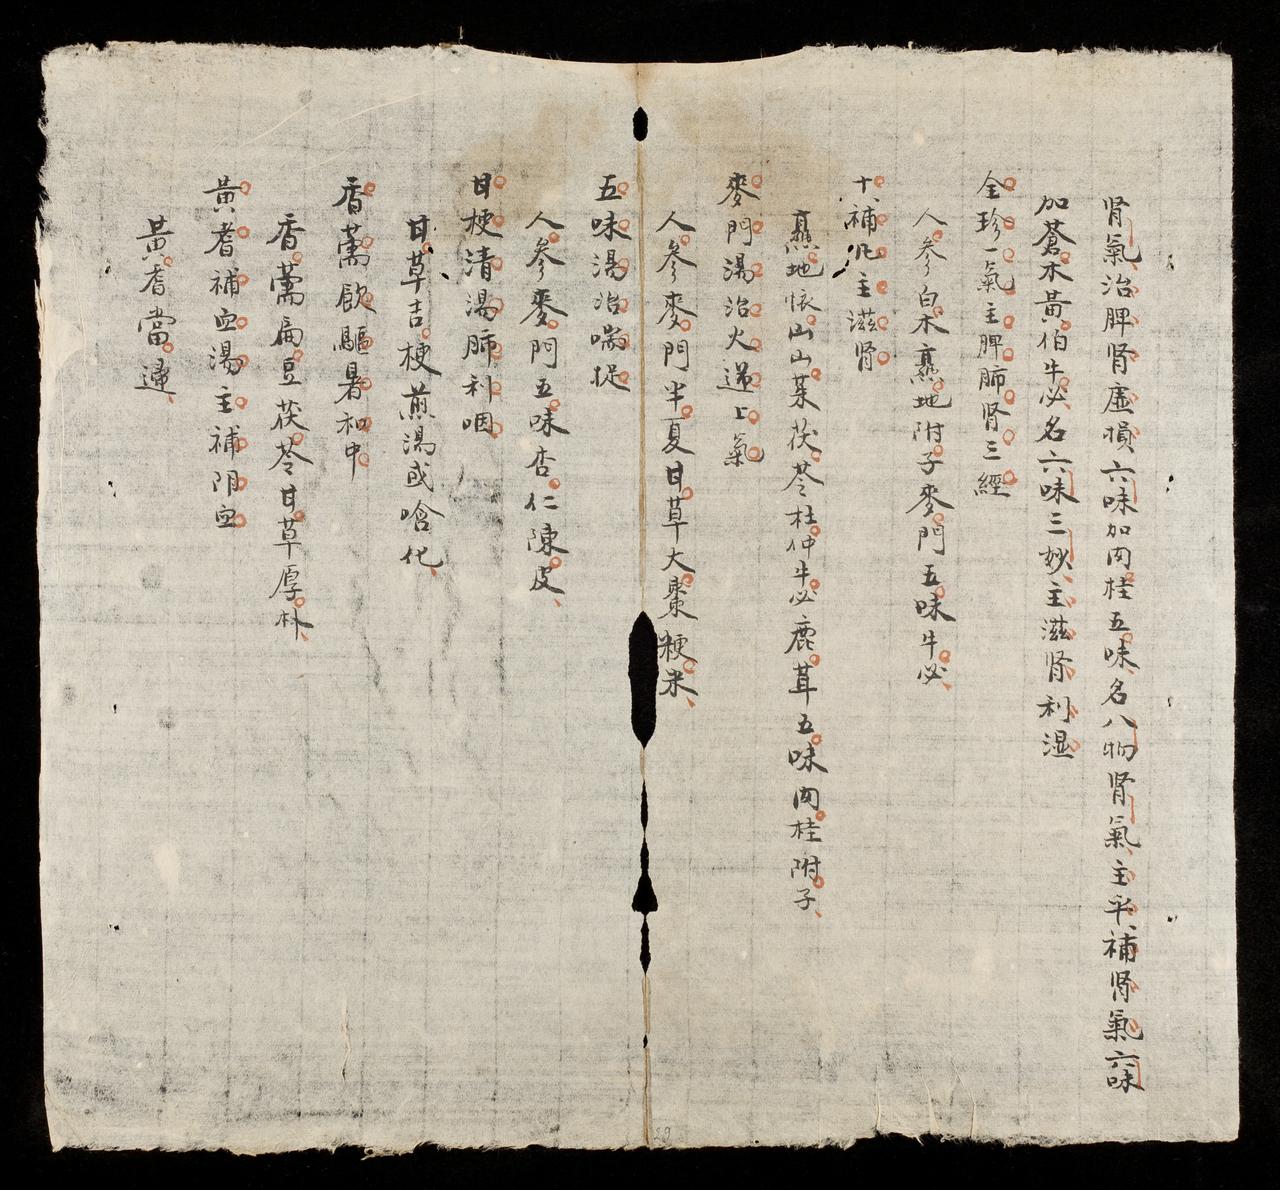 肾氣治脾肾虛損六味加肉桂五味名八物肾氣主平補肾氣六味
加蒼木黃伯牛必名六味三妙主滋肾利湿
全珍一氣主脾肺肾三經
人參白木熟地附子麥門五味牛必
十補
主滋肾
熟地懷山山茱茯苓杜仲牛必鹿茸五味肉桂附子
麥門湯治火逆上氣
人參麥門半夏甘草大棗粳米
五味湯治喘促
人參麥門五味杏仁陳皮
甘梗清湯肺利咽
甘草吉梗煎湯或唅化
香薷飲驅暑和中
香薷扁豆茯苓甘草厚朴
黃耆補血湯主補阴血
黃耆當